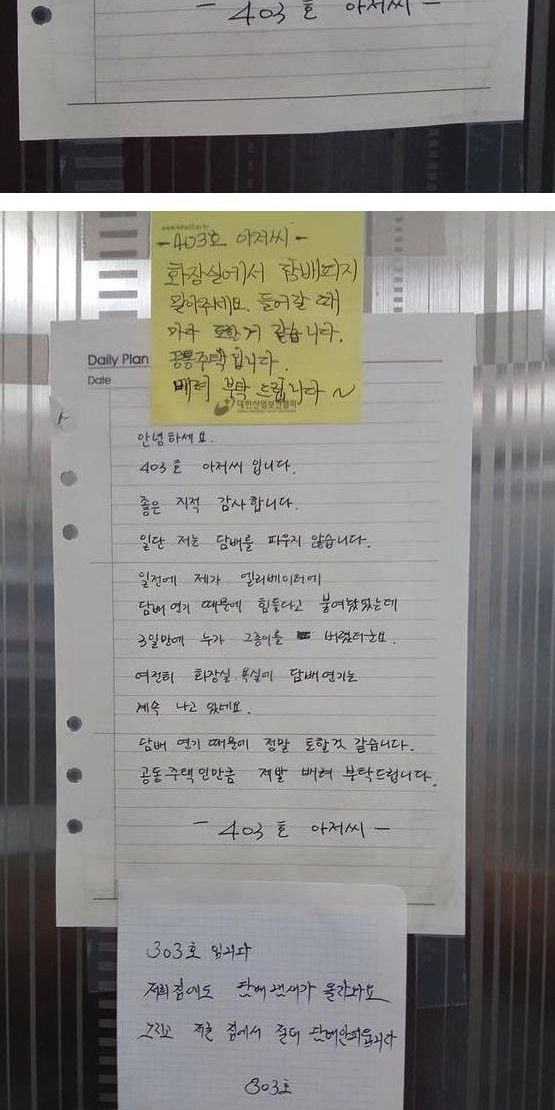 - 403호 아저씨 -
www.kiha21.or.kr
- 403호 아저씨 -
화장실에서 담배피지
말아주세요. 들어갈 때
마다 토할거 같습니다.
공동주택 입니다.
배려 부탁 드립니다 ~
대한산업보건협회
Daily Plan
Date
안녕하세요.
403호 아저씨 입니다.
좋은 지적 감사합니다.
일단 저는 담배를 피우지 않습니다.
일전에 제가 엘리베이터에
담배 연기 때문에 힘들다고 붙여놨었는데
3일만에 누가 그종이를 버렸더군요.
여전히 화장실. 욕실에 담배연기는
계속 나고 있네요.
담배 연기 때문에 정말 토할것 같습니다.
공동주택인만큼 제발 배려 부탁드립니다.
- 403호 아저씨 -
303호 입니다
저희 집에도 담배 냄새가 올라와요
그리고 저흰 집에서 절대 담배안피웁니다
303호